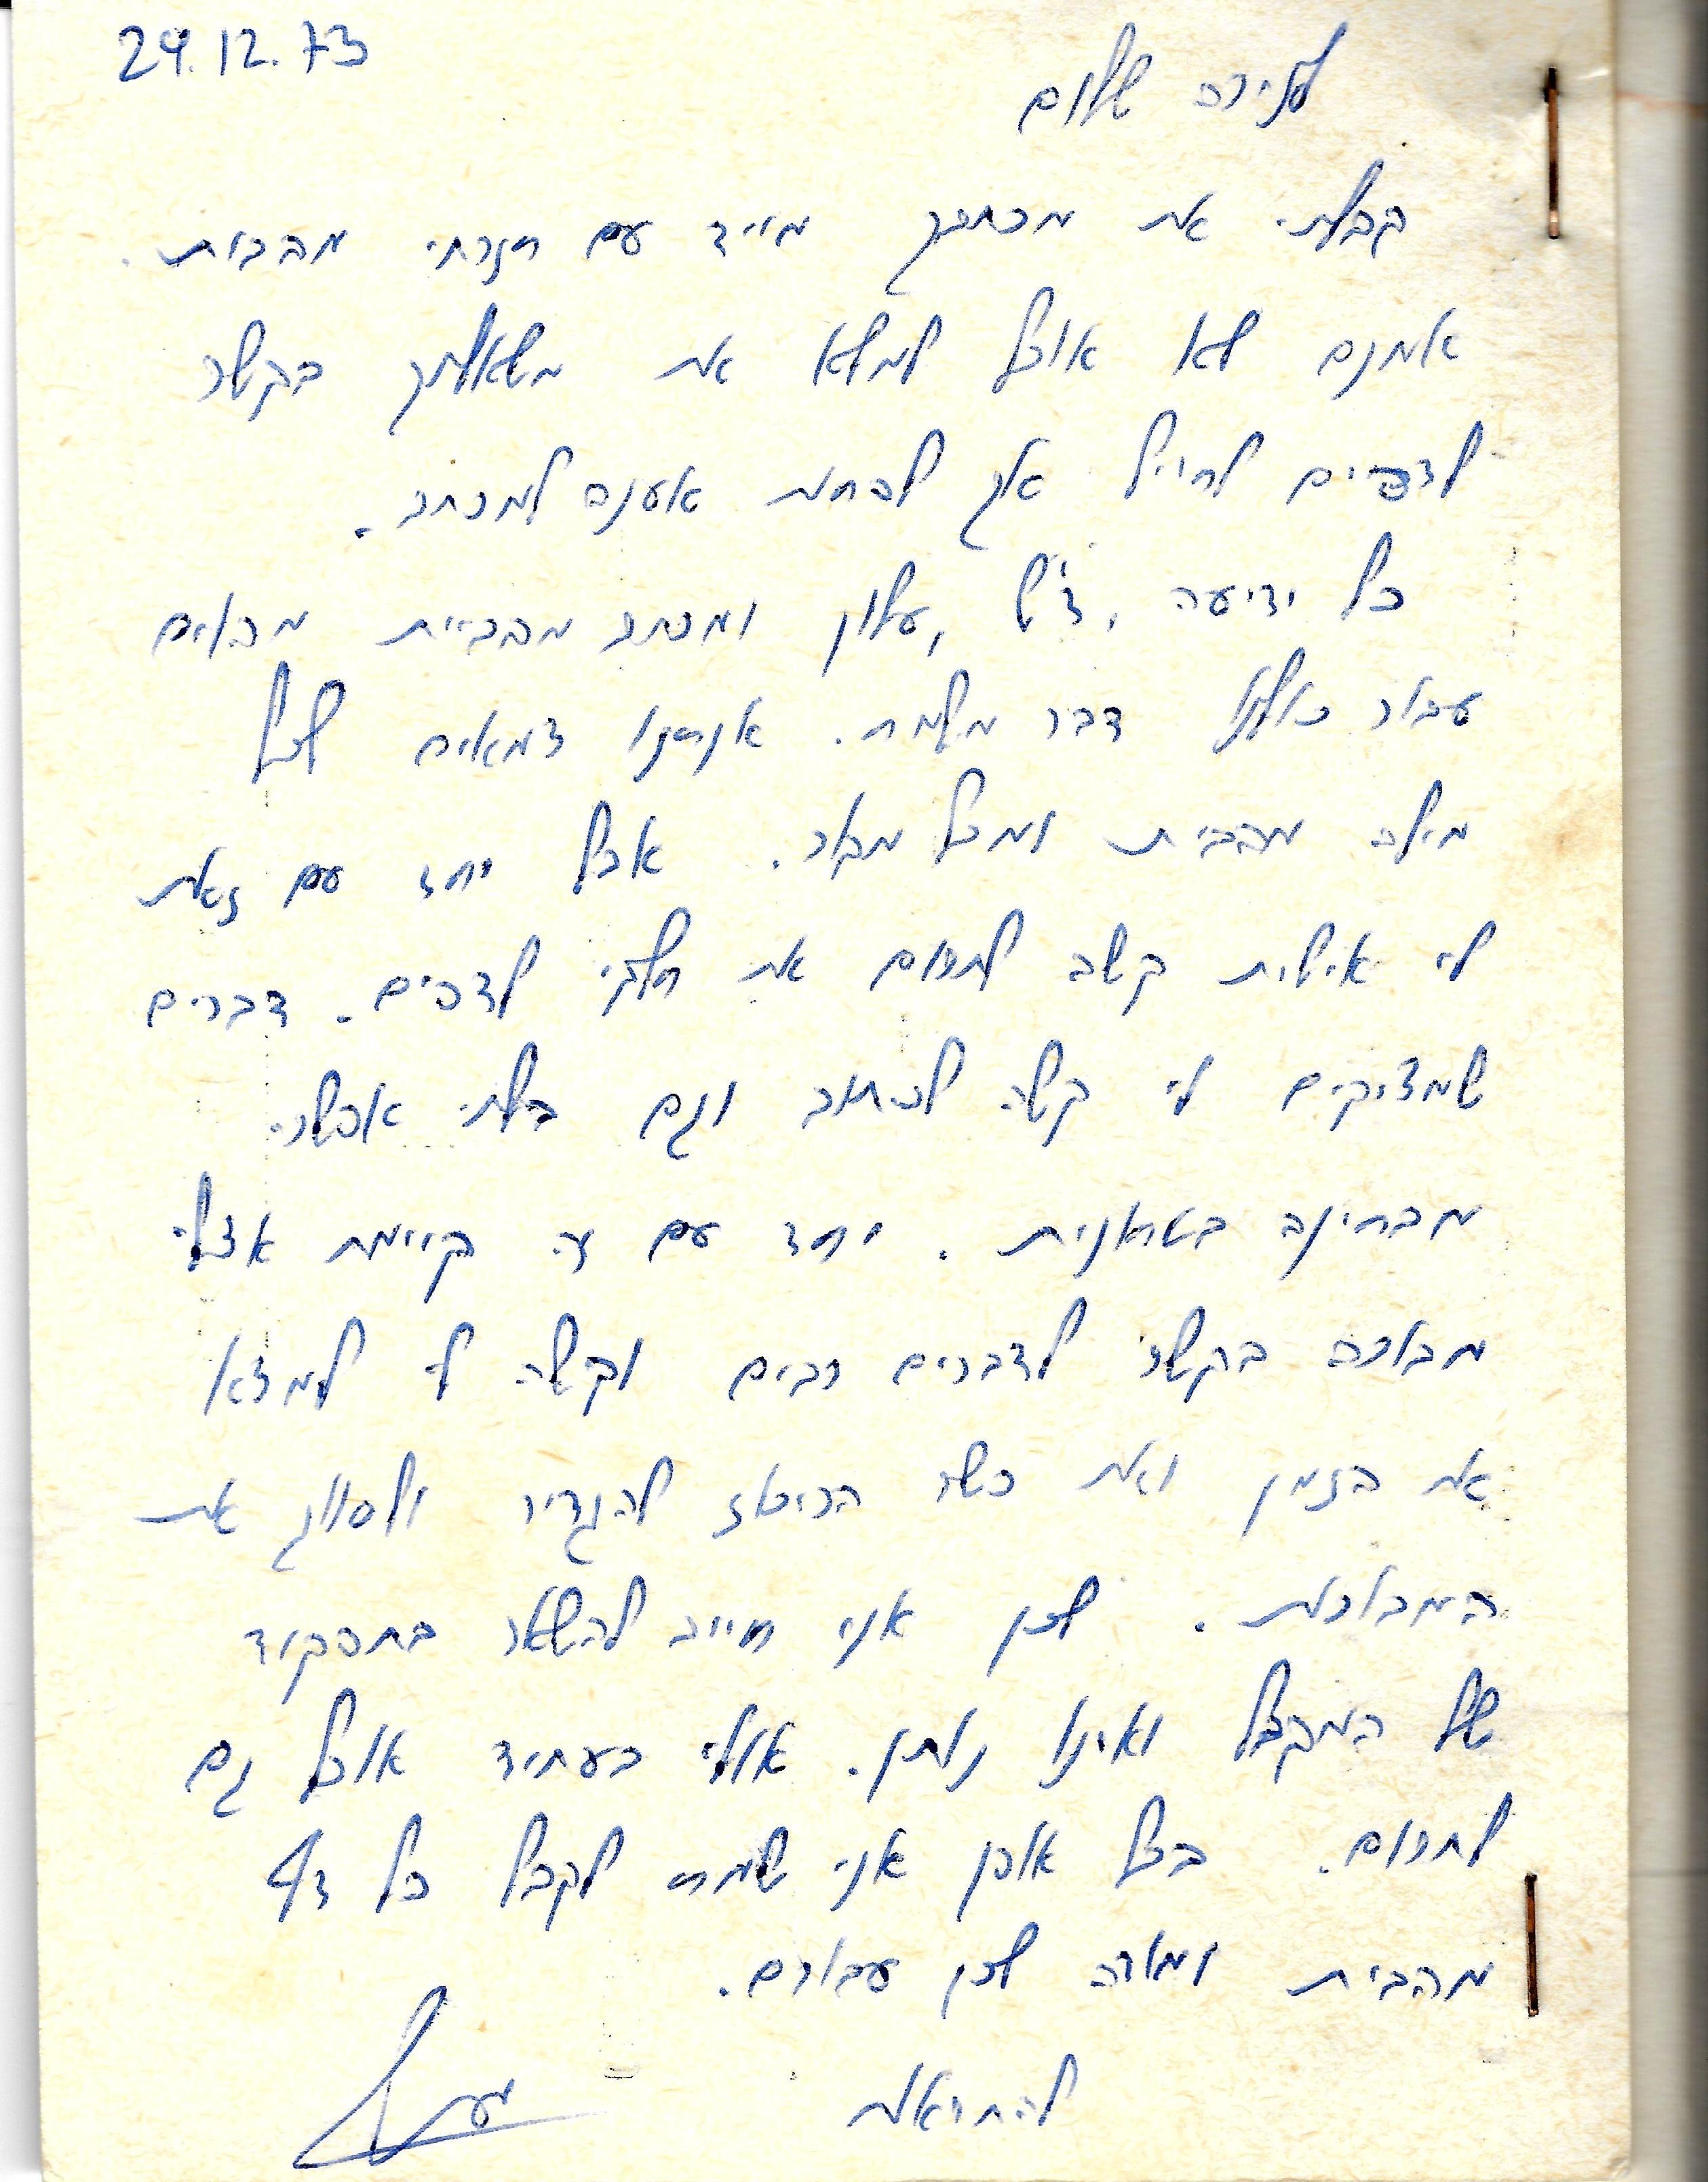 24.12.73
לנירה שלום
קבלתי את מכתבך מייד עם חזרתי מהבית.
אמנם לא אוכל למלא את משאלתך בקשר
לדפים לחייל אך לפחות אענה למכתב.
כל ידיעה, ד"ש, עלון ומכתב מהבית מהווים
עבור כולנו דבר מלמד. אנחנו צמאים לכל
מילה מהבית ומכל מקור. אבל יחד עם זאת
לי אישית קשה לתרום את חלקי לדפים. דברים
שמציקים לי קשה לכתוב וגם בלתי אפשרי
מבחינה בטחונית. יחד עם זה קיימת אצלי
מבוכה בקשר לדברים רבים וקשה לי למצוא
את הזמן ואת כשר הריכוז להגדיר ולסווג את
המבוכות. לכן אני חייב להשאר בתפקיד
של המקבל ואינו נותן. אולי בעתיד אוכל גם
לתרום. בכל אופן אני שמח לקבל כל ד"ש
מהבית ומודה לכן עבורם.
להתראות